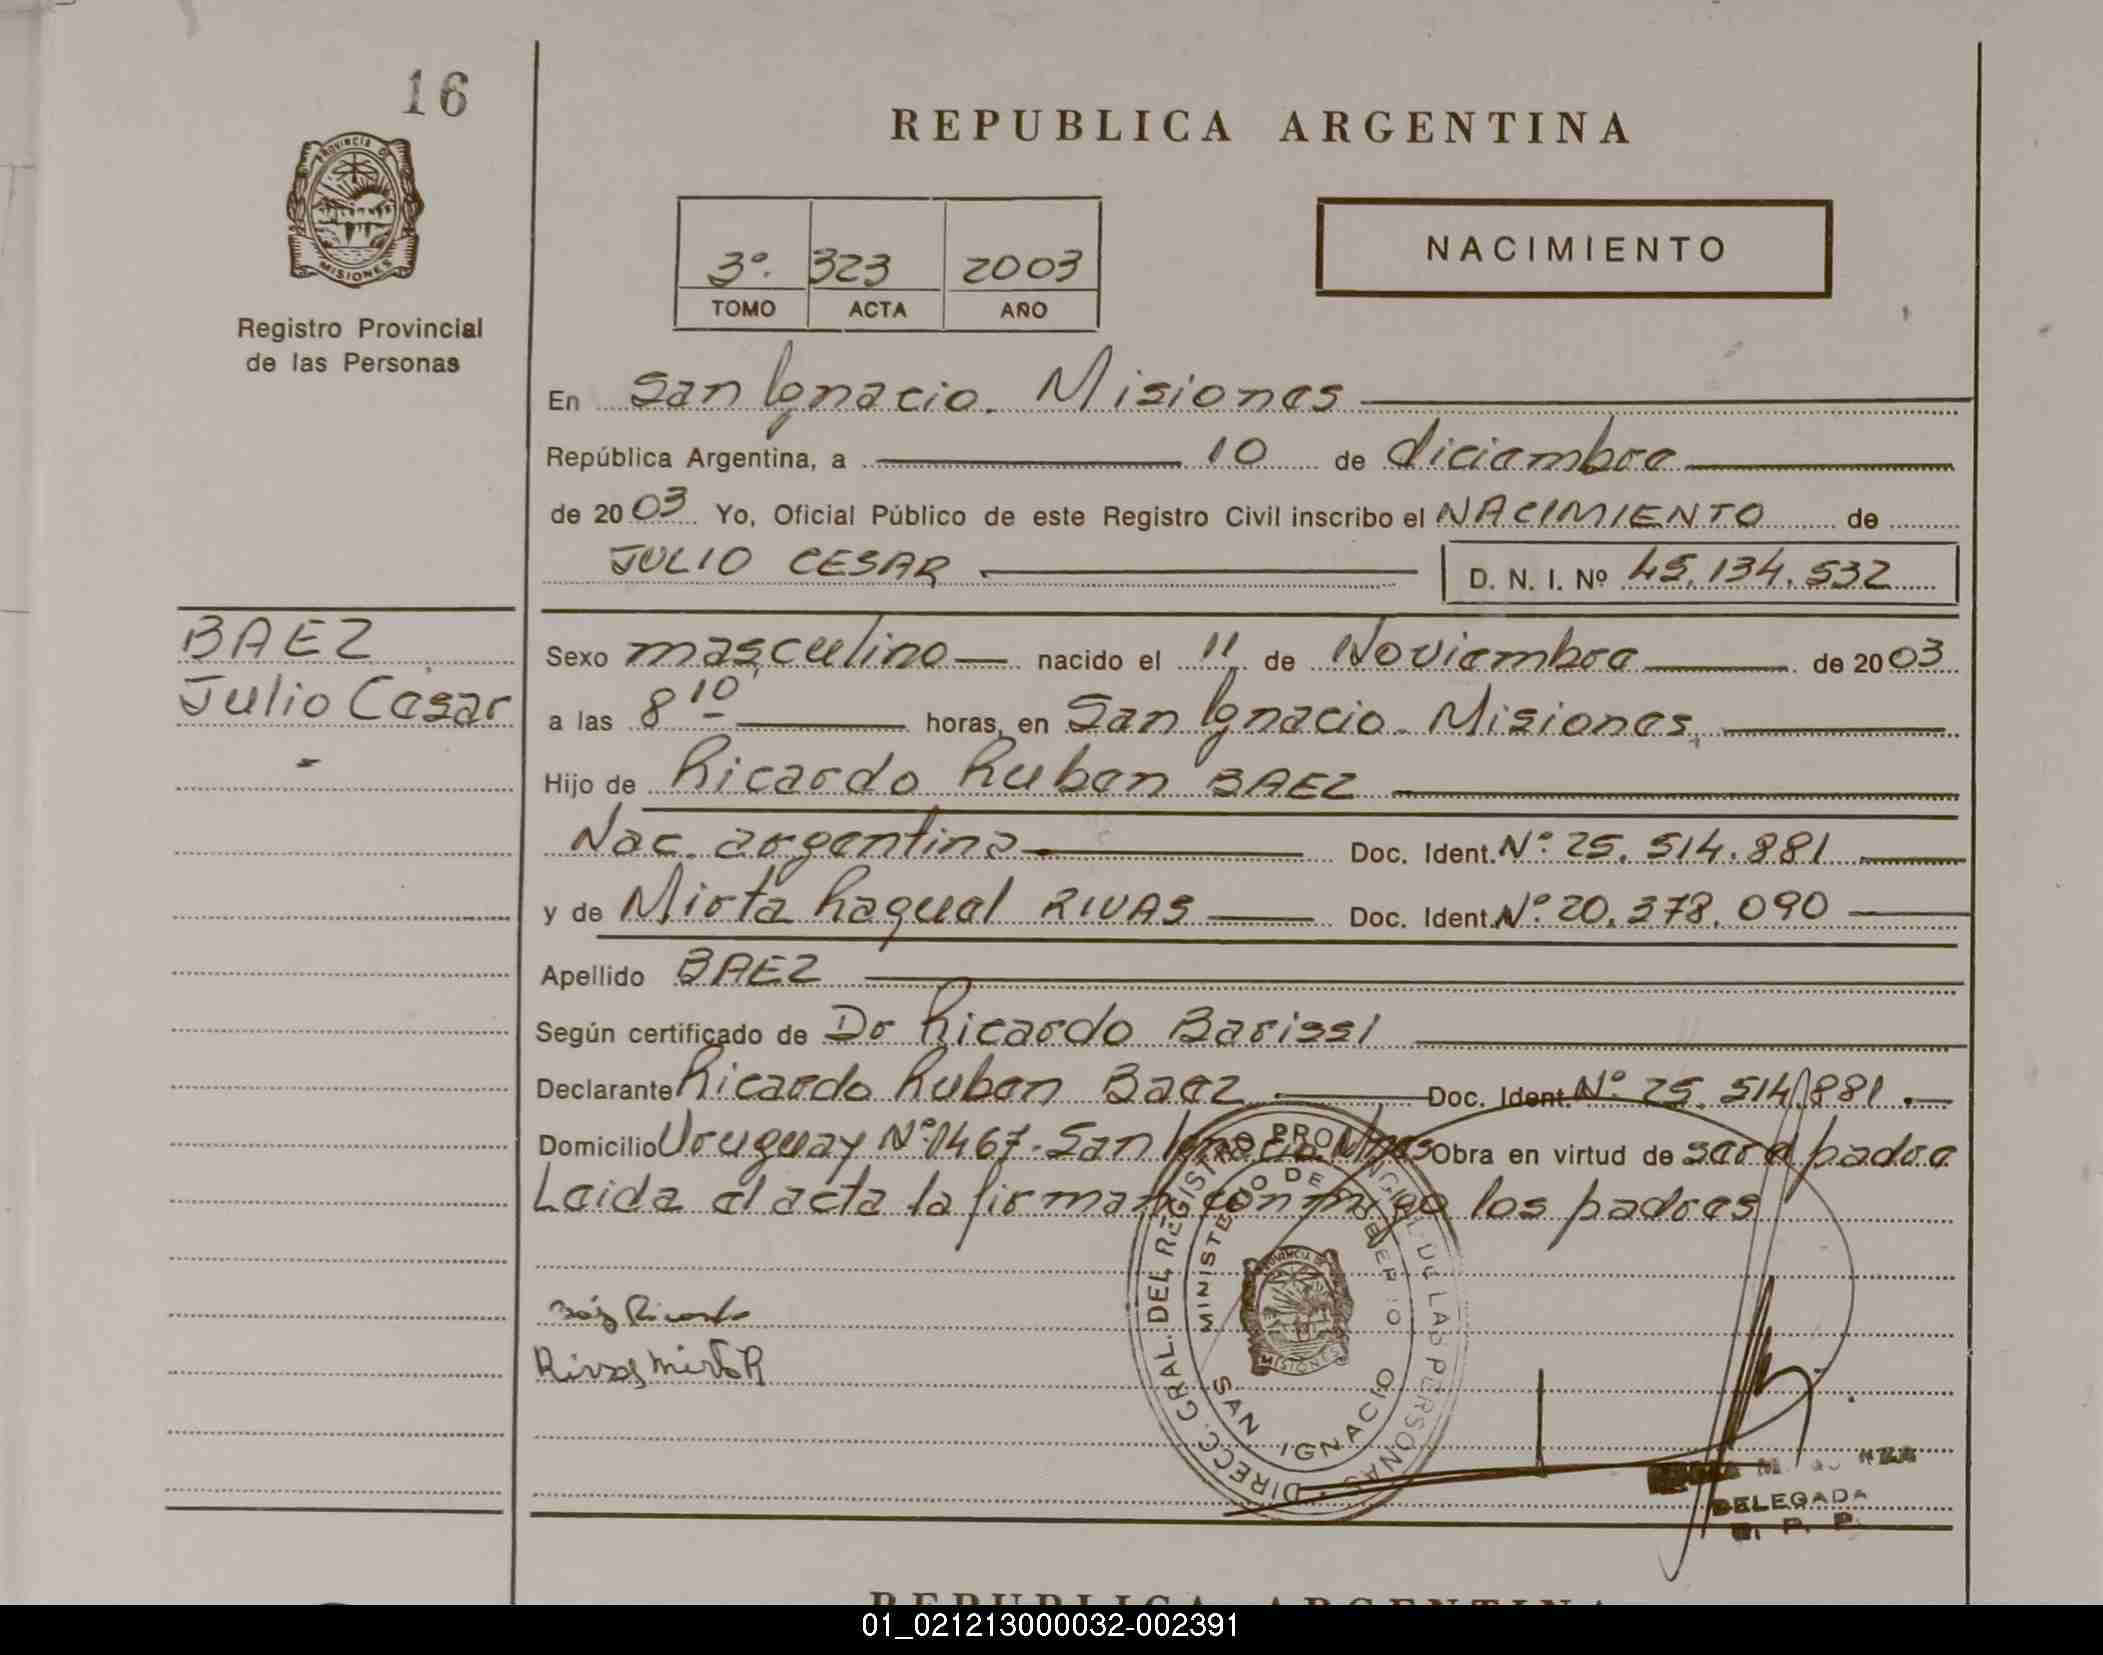 16
PROVINCIA DE
MISIONES
Registro Provincial
de las Personas
REPUBLICA ARGENTINA
3º. 323 2003
TOMO ACTA AÑO
NACIMIENTO
En San Ignacio. Misiones
República Argentina, a 10 de diciembre
de 2003 Yo, Oficial Público de este Registro Civil inscribo el NACIMIENTO de
JULIO CESAR D. N. I. Nº 45.134.532
BAEZ
Julio Cesar
Sexo masculino nacido el 11 de Noviembre de 2003
a las 8 10 horas, en San Ignacio. Misiones
Hijo de Ricardo Ruben BAEZ
Nac. argentina Doc. Ident. Nº 25.514.881
y de Mirta Raquel RIVAS Doc. Ident. Nº 20.378.090
Apellido BAEZ
Según certificado de Dr Ricardo Barissi
Declarante Ricardo Ruben Baez Doc. Ident. Nº 25.514.881.
Domicilio Uruguay Nº 1467. San Ignacio. Mnes Obra en virtud de ser el padre
Leida el acta la firman conmigo los padres
Ricardo
Rivas Mirta R
DIRECC. GRAL. DEL REGISTRO PROVINCIAL DE LAS PERSONAS
MINISTERIO DE GOBIERNO
SAN IGNACIO
PROVINCIA DE
MISIONES
DELEGADA
R. P. P.
REPUBLICA ARGENTINA
01_021213000032-002391